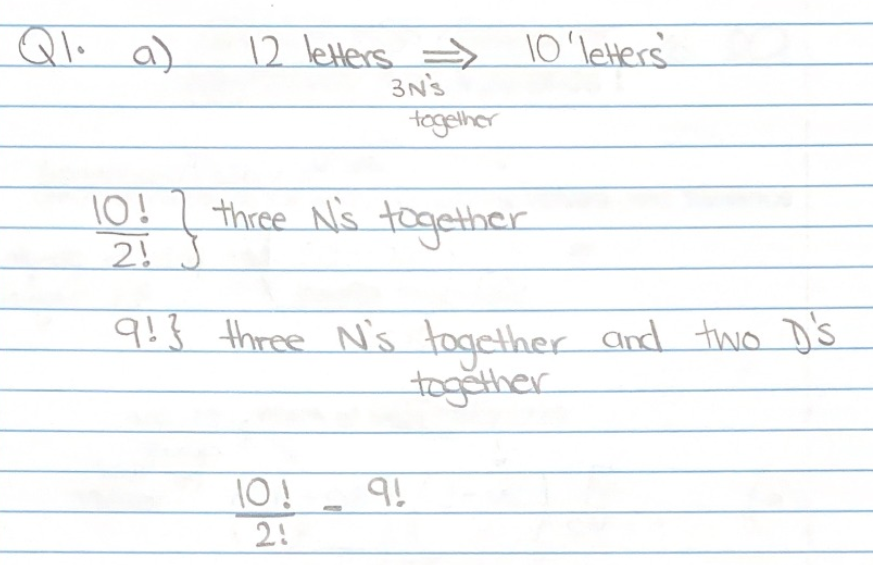 Q1. a) 12 letters ⟹ 10 'letters'
3N's
together
10!/2! } three N's together
9! } three N's together and two D's
together
10!/2! - 9!